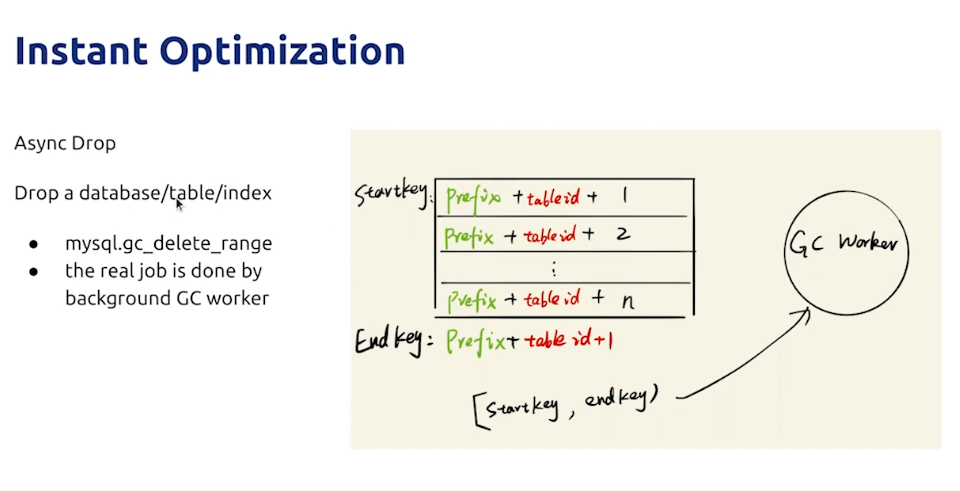 Instant Optimization
Async Drop
Drop a database/table/index
● mysql.gc_delete_range
● the real job is done by
background GC worker
Startkey: Prefix + tableid + 1
Prefix + tableid + 2
⋮
Prefix + tableid + n
Endkey: Prefix + table id+1
[startkey, endkey)
GC Worker